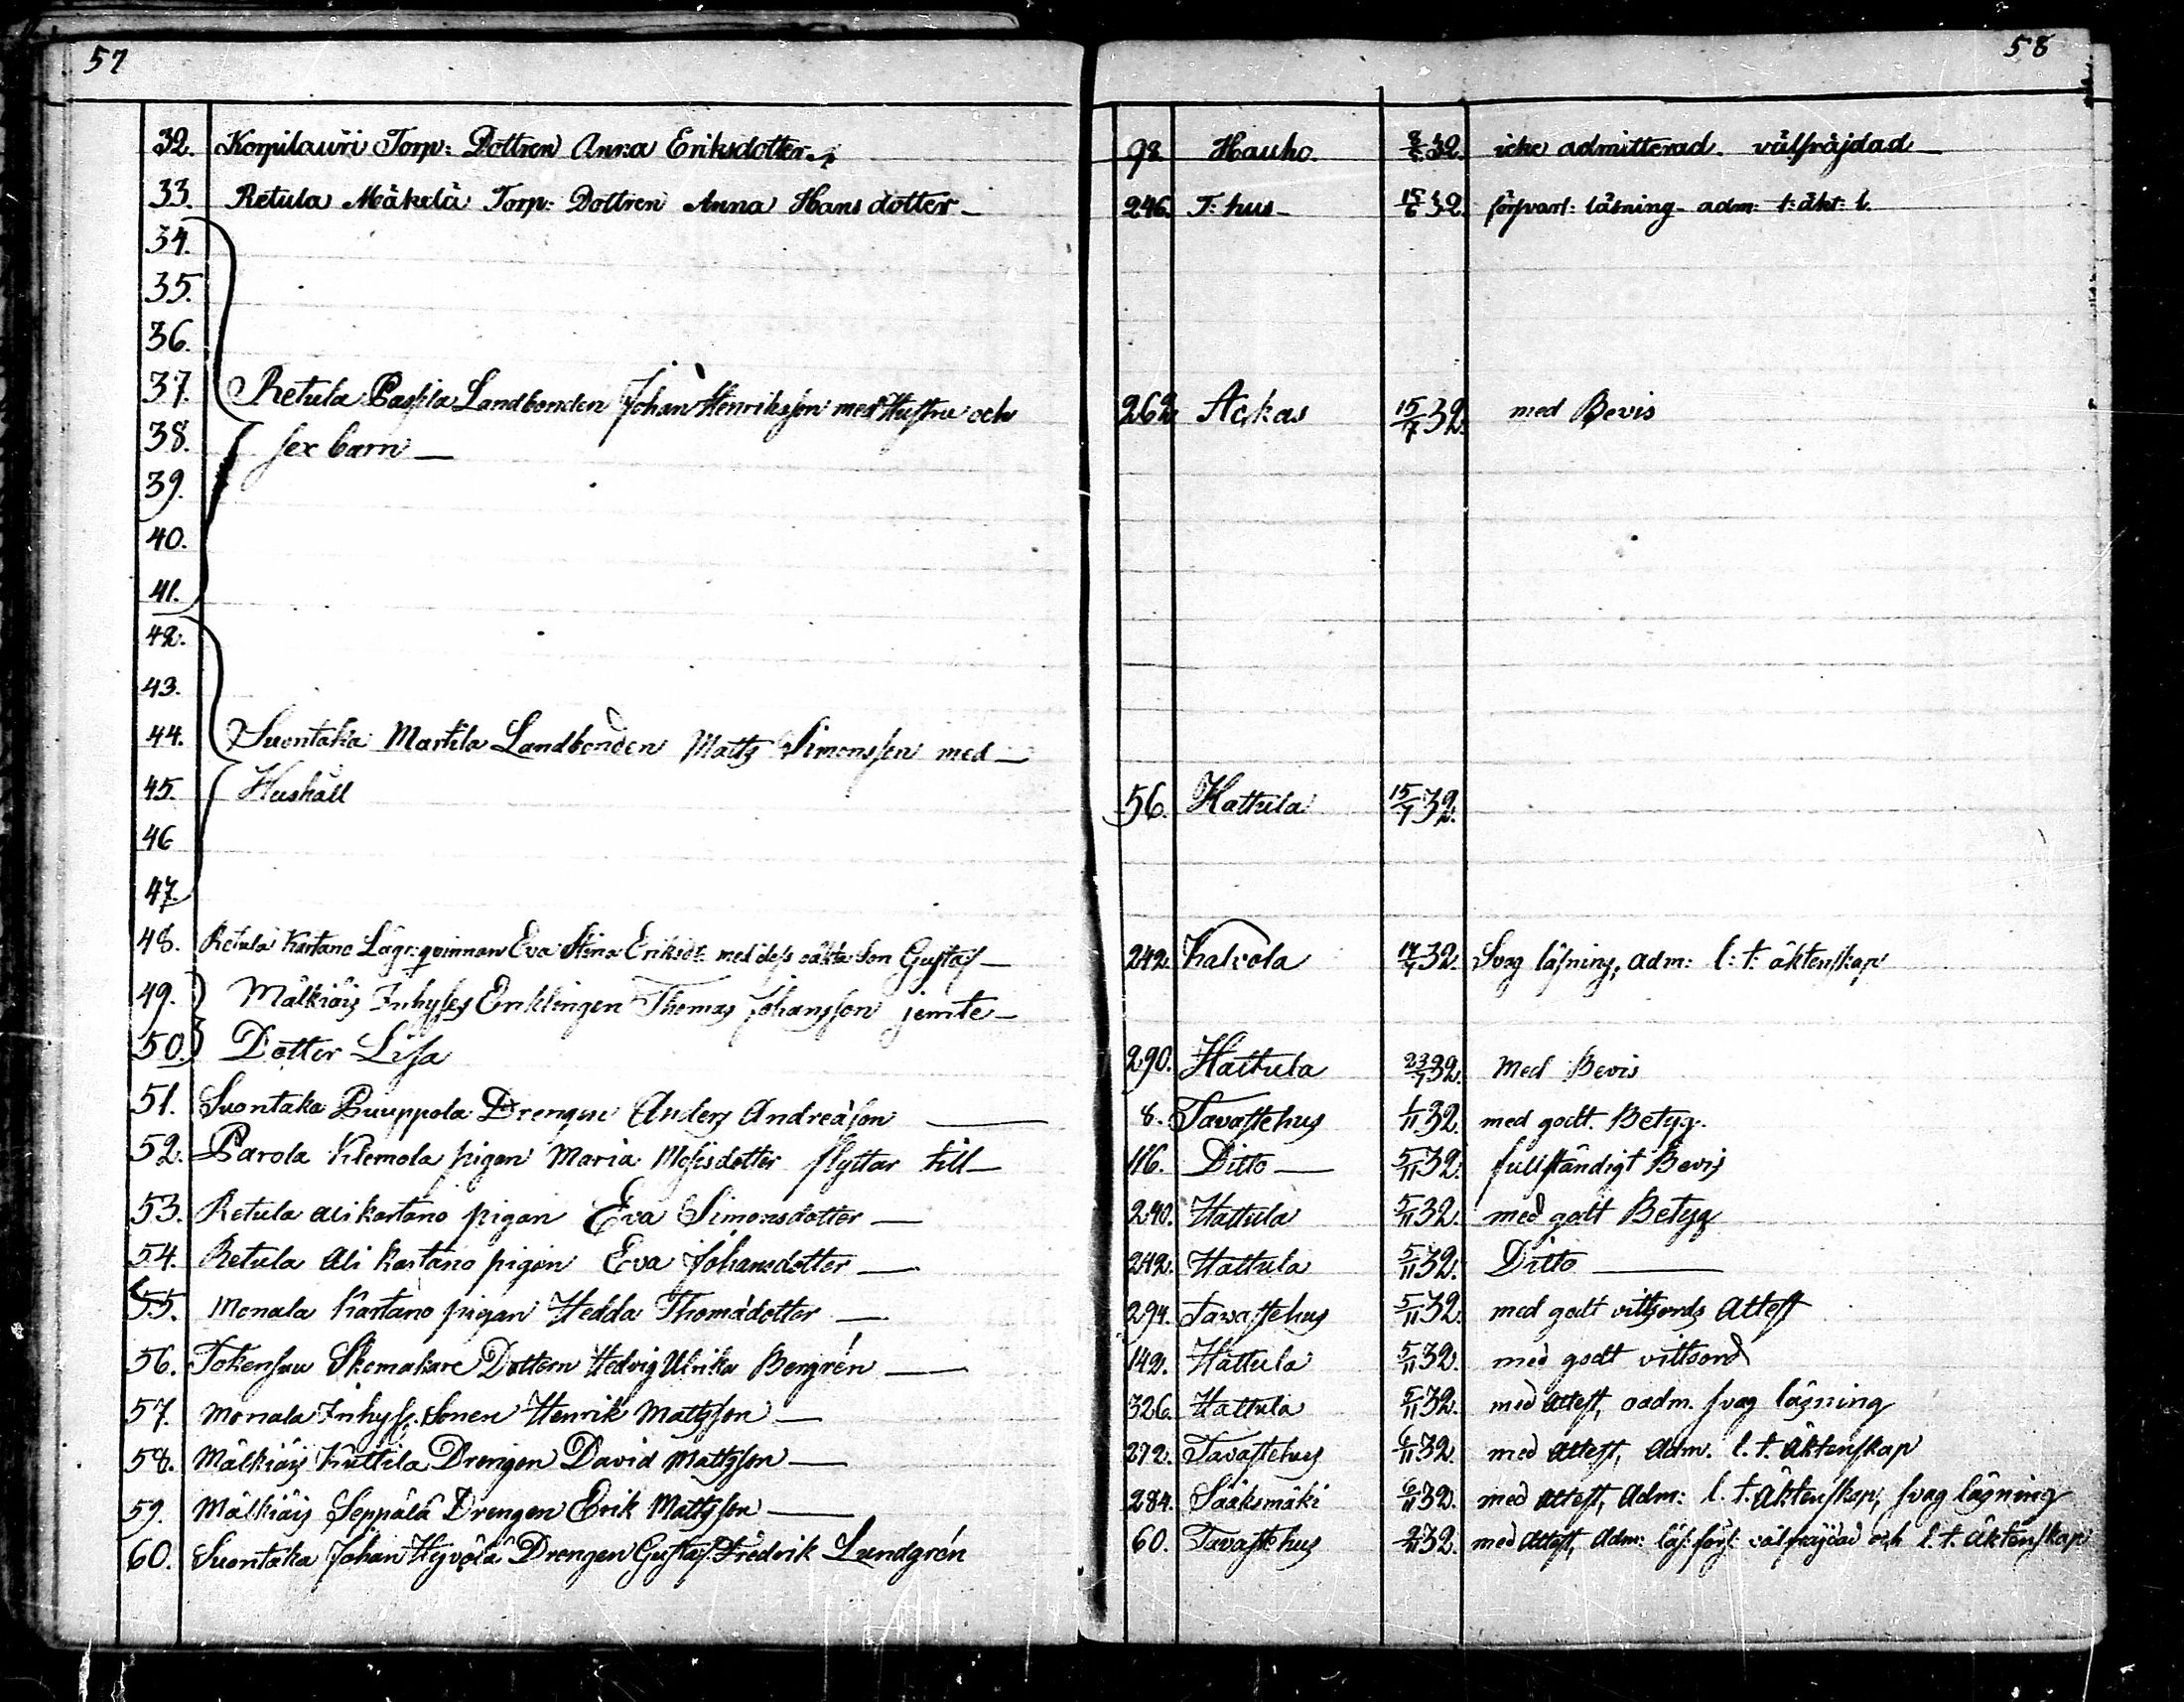 57
58
32. Korpilauri Torp: Dottren Anna Eriksdotter. 98 Hauho. 32. icke admitterad. välfräjdad
33. Retula Mäkelä Torp: Dottren Anna Hansdotter 246. T:hus 15/6 32. försvarl: läsning adm: l: äkt: l.
34.
35.
36.
37. Retula Passila Landbonden Johan Henriksson med Hustru och 262 Ackas 15/7 32. med Bevis
38. sex barn
39.
40.
41.
42.
43.
44. Suontaka Markila Landbonden Matts Simonsson med
45. Hushåll 56. Hattula 15/7 32.
46
47.
48. Retula Kartano Lägr:qvinnan Eva Stina Eriksdr: med dess oäkta Son Gustaf 242 Kalvola 17/7 32. Svag läsning, adm: l: t: äktenskap
49. Mälkiäis Inhyses Enklingen Thomas Johansson jemte
50. Dotter Lisa 290. Hattula 23/7 32. Med Bevis
51. Suontaka Puuppola Drengen Anders Andreåson 8. Tavastehus 1/11 32. med godt Betyg.
52. Parola Klemola pigan Maria Mosisdotter flyttar till 116. Ditto 5/11 32. fullständigt Bevis
53. Retula alikartano pigan Eva Simonsdotter 240. Hattula 5/11 32. med godt Betyg
54. Retula Ali kartano pigan Eva Johansdotter 242. Hattula 5/11 32. Ditto
55. Monala Kartano pigan Hedda Thomådotter 294. Tavastehus 5/11 32. med godt vittsords Attest
56. Skomakare Dottern Hedvig Ulrika Bergrén 142. Hattula 5/11 32. med godt vittsord
57. Monala Inhyss. Sonen Henrik Mattsson 326. Hattula 5/11 32. med attest, oadm. svag läsning
58. Mälkiäis Knuttila Drengen David Mattsson 272. Tavastehus 6/11 32. med attest, Adm. l. t. äktenskap
59. Mälkiäis Seppälä Drengen Erik Mattsson 284. Sääksmäki 6/11 32. med attest, Adm: l. t. Äktenskap, svag läsning
60. Suontaka Johan Hyvölä Drengen Gustaf Fredrik Lundgrén 60. Tavastehus 32. med Attest, Adm: läs: förs: välfräjdad och l. t. Äktenskap